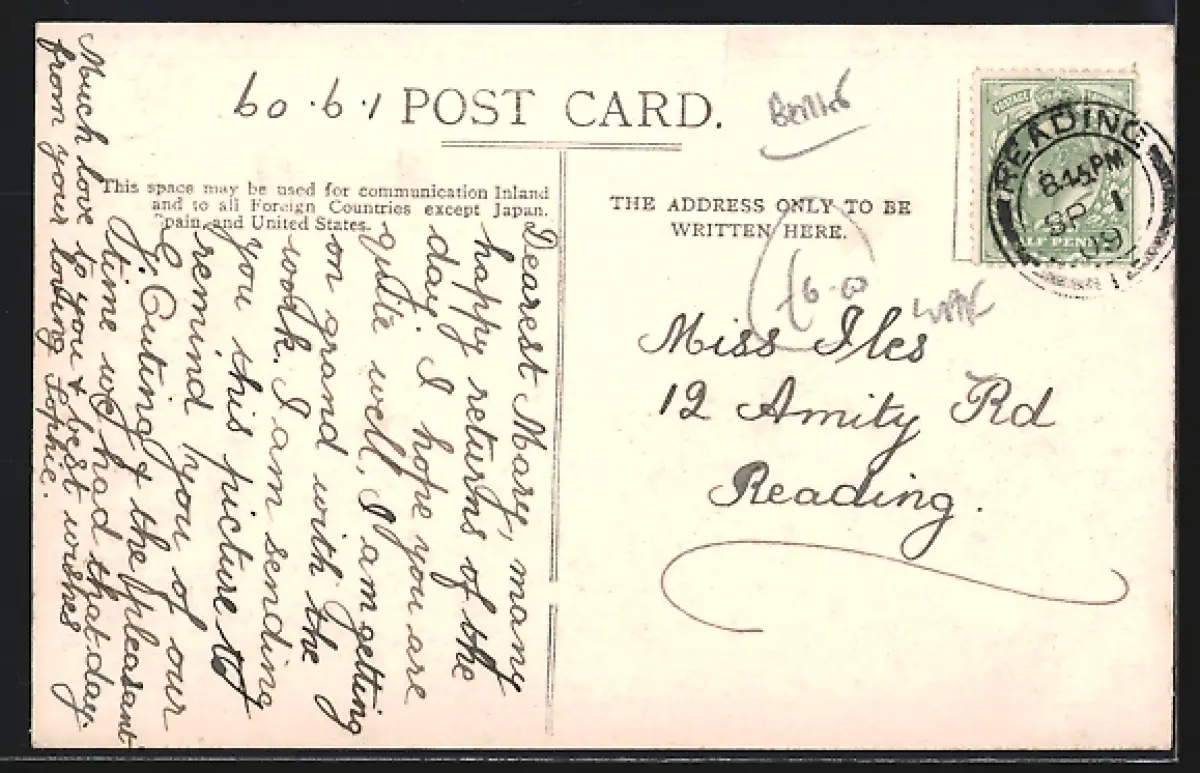 60.6.1 POST CARD.
This space may be used for communication Inland
and to all Foreign Countries except Japan,
Spain, and United States.
THE ADDRESS ONLY TO BE
WRITTEN HERE.
READING
8.45PM
SP 1
09
HALF PENNY
Miss Iles
12 Amity Rd
Reading.
Dearest Mary, many
happy returns of the
day. I hope you are
quite well, I am getting
on grand with the
work. I am sending
you this picture to
remind you of our
G. J. Outing & the pleasant
time we had that day.
Much love to you & best wishes
from your loving Sophie.